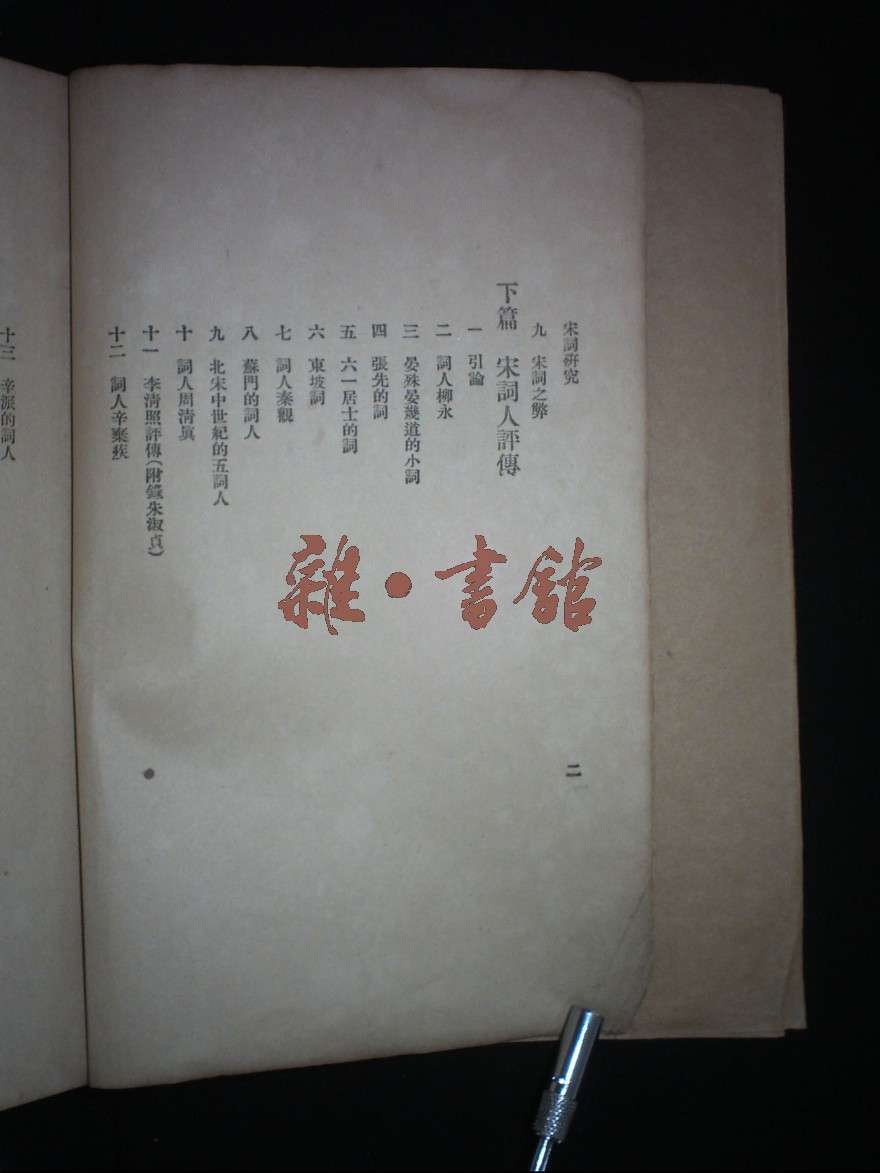 宋詞研究
九 宋詞之弊
下篇 宋詞人評傳
一 引論
二 詞人柳永
三 晏殊晏幾道的小詞
四 張先的詞
五 六一居士的詞
六 東坡詞
七 詞人秦觀
八 蘇門的詞人
九 北宋中世紀的五詞人
十 詞人周清眞
十一 李清照評傳(附錄朱淑貞)
十二 詞人辛棄疾
二
十三 辛派的詞人
雜•書館